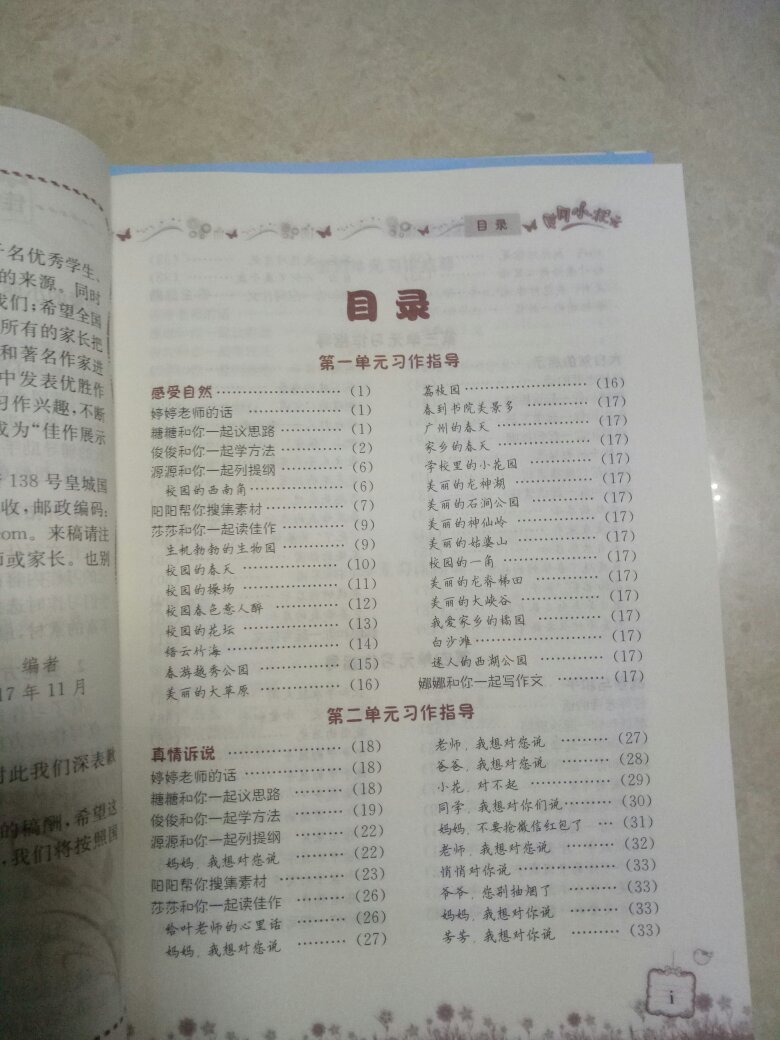 子名优秀学生、
的来源。同时
我们；希望全国
所有的家长把
和著名作家进
中发表优胜作
习作兴趣，不断
成为“佳作展示
138号皇城国
收，邮政编码：
com。来稿请注
师或家长。也别
编者
17年11月
对此我们深表歉
的稿酬，希望这
，我们将按照国
目录
目录
第一单元习作指导
感受自然 (1)
婷婷老师的话 (1)
糖糖和你一起议思路 (1)
俊俊和你一起学方法 (2)
源源和你一起列提纲 (6)
校园的西南角 (6)
阳阳帮你搜集素材 (7)
莎莎和你一起读佳作 (9)
生机勃勃的生物园 (9)
校园的春天 (10)
校园的操场 (11)
校园春色惹人醉 (12)
校园的花坛 (13)
缙云竹海 (14)
春游越秀公园 (15)
美丽的大草原 (16)
荔枝园 (16)
春到书院美景多 (17)
广州的春天 (17)
家乡的春天 (17)
学校里的小花园 (17)
美丽的龙神湖 (17)
美丽的石涧公园 (17)
美丽的神仙岭 (17)
美丽的姑婆山 (17)
校园的一角 (17)
美丽的龙脊梯田 (17)
美丽的大峡谷 (17)
我爱家乡的橘园 (17)
白沙滩 (17)
迷人的西湖公园 (17)
娜娜和你一起写作文 (17)
第二单元习作指导
真情诉说 (18)
婷婷老师的话 (18)
糖糖和你一起议思路 (18)
俊俊和你一起学方法 (19)
源源和你一起列提纲 (22)
妈妈，我想对您说 (22)
阳阳帮你搜集素材 (23)
莎莎和你一起读佳作 (26)
给叶老师的心里话 (26)
妈妈，我想对您说 (27)
老师，我想对您说 (27)
爸爸，我想对您说 (28)
小花，对不起 (29)
同学，我想对你们说 (30)
妈妈，不要抢微信红包了 (31)
老师，我想对您说 (32)
悄悄对你说 (33)
爷爷，您别抽烟了 (33)
妈妈，我想对你说 (33)
芳芳，我想对你说 (33)
i